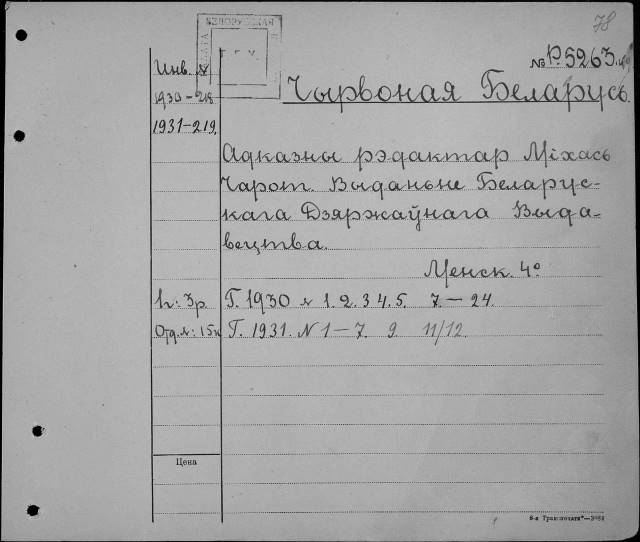 78
БЕЛОРУССКАЯ
№ Р5263
Инв. №
1930-218
1931-219.
Чырвоная Беларусь.
Адказны рэдактар Міхась
Чарот. Выданьне Беларус-
кага Дзяржаўнага Выда-
вецтва.
Менск. 4º
ц: 3р.
Г. 1930 № 1. 2. 3 4. 5. 7.—24.
Отд. №: 15к
Г. 1931. N 1—7. 9. 11/12.
Цена